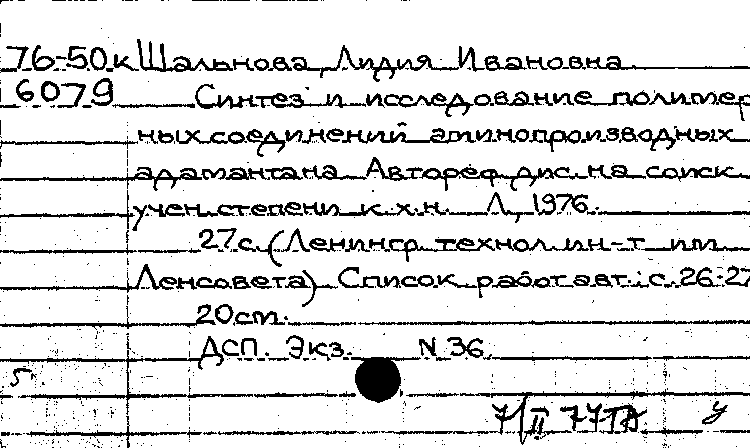 76-50к Шальнова, Лидия Ивановна
6079 Синтез и исследование полимер
ных соединений аминопроизводных
адамантана Автореф дис. на соиск.
учен. степени к.х.н. Л., 1976.
27с. (Ленингр. технол. ин-т им
Ленсовета) Список работ авт.: с. 26-27
20см.
ДСП. Экз. N 36
5.
7/II 77
У